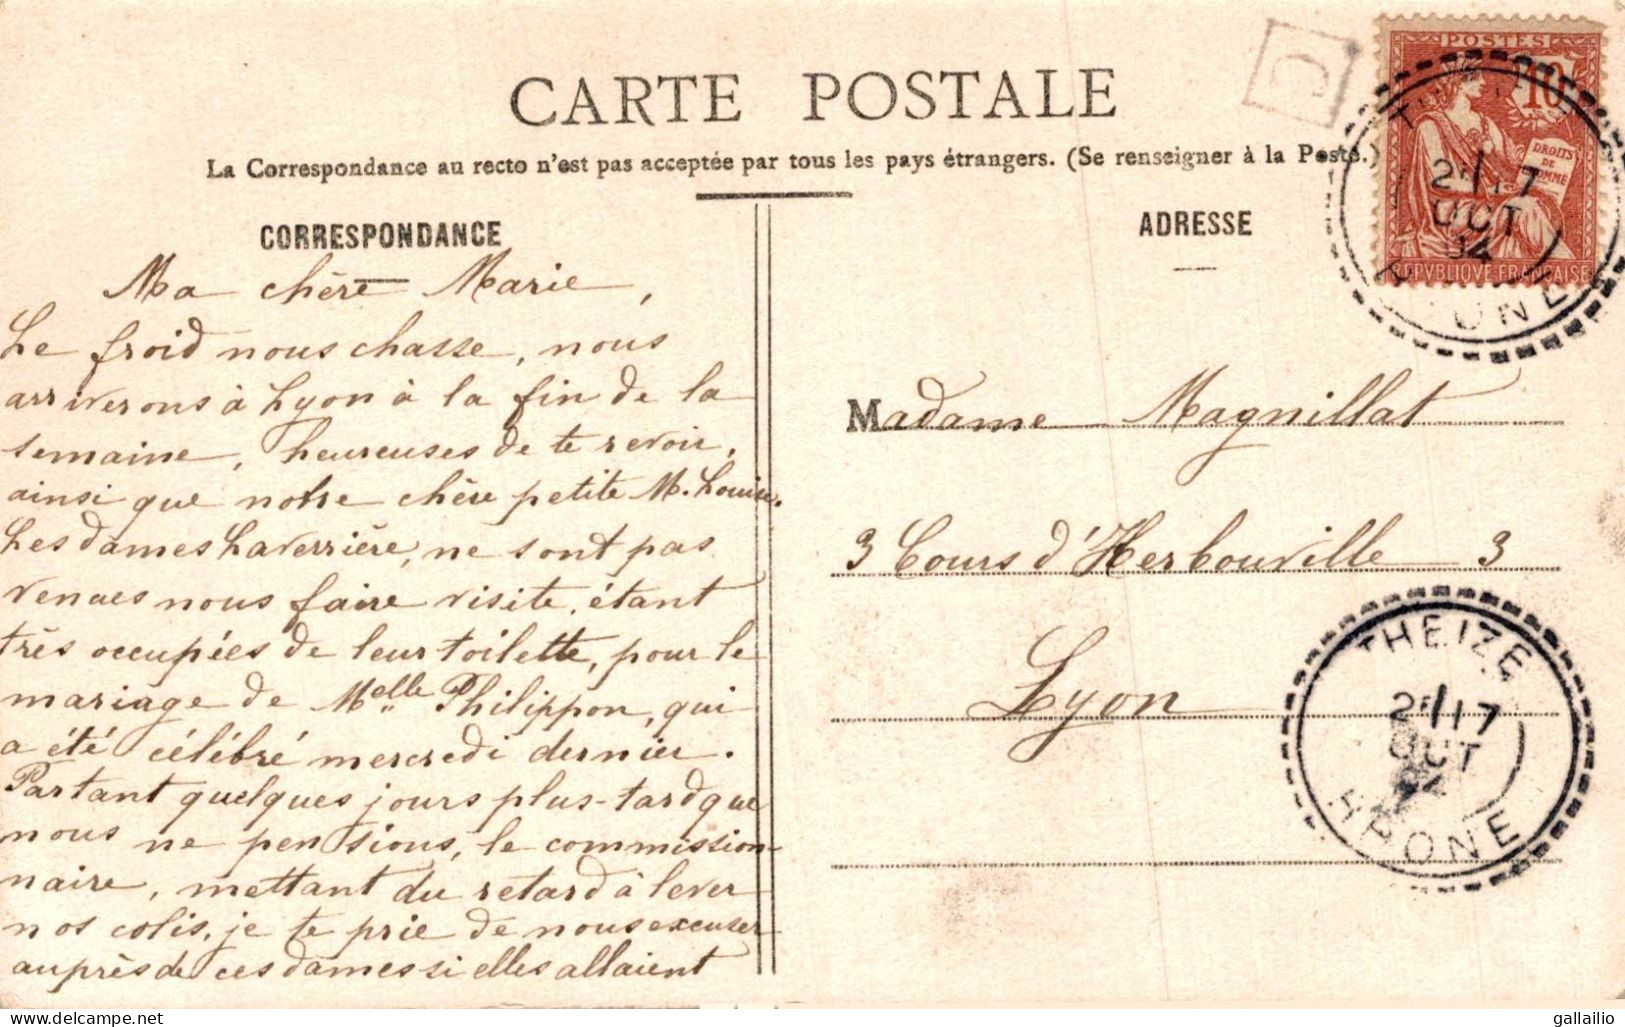 CARTE POSTALE
La Correspondance au recto n'est pas acceptée par tous les pays étrangers. (Se renseigner à la Poste.)
CORRESPONDANCE
Ma chère Marie,
Le froid nous chasse, nous
arriverons à Lyon à la fin de la
semaine, heureuses de te revoir,
ainsi que notre chère petite M. Louise.
Les dames Laverrière, ne sont pas
venues nous faire visite, étant
très occupées de leur toilette, pour le
mariage de Melle Philippon, qui
a été célébré mercredi dernier.
Partant quelques jours plus-tard que
nous ne pensions, le commission-
naire, mettant du retard à lever
nos colis, je te prie de nous excuser
auprès de ces dames si elles allaient
ADRESSE
Madame Magnillat
3 Cours d'Herbouville 3
Lyon
POSTES
10
DROITS
DE
L'HOMME
REPVBLIQVE FRANÇAISE
17
OCT
THEIZE
17
OCT
RHONE
delcampe.net
gallailio